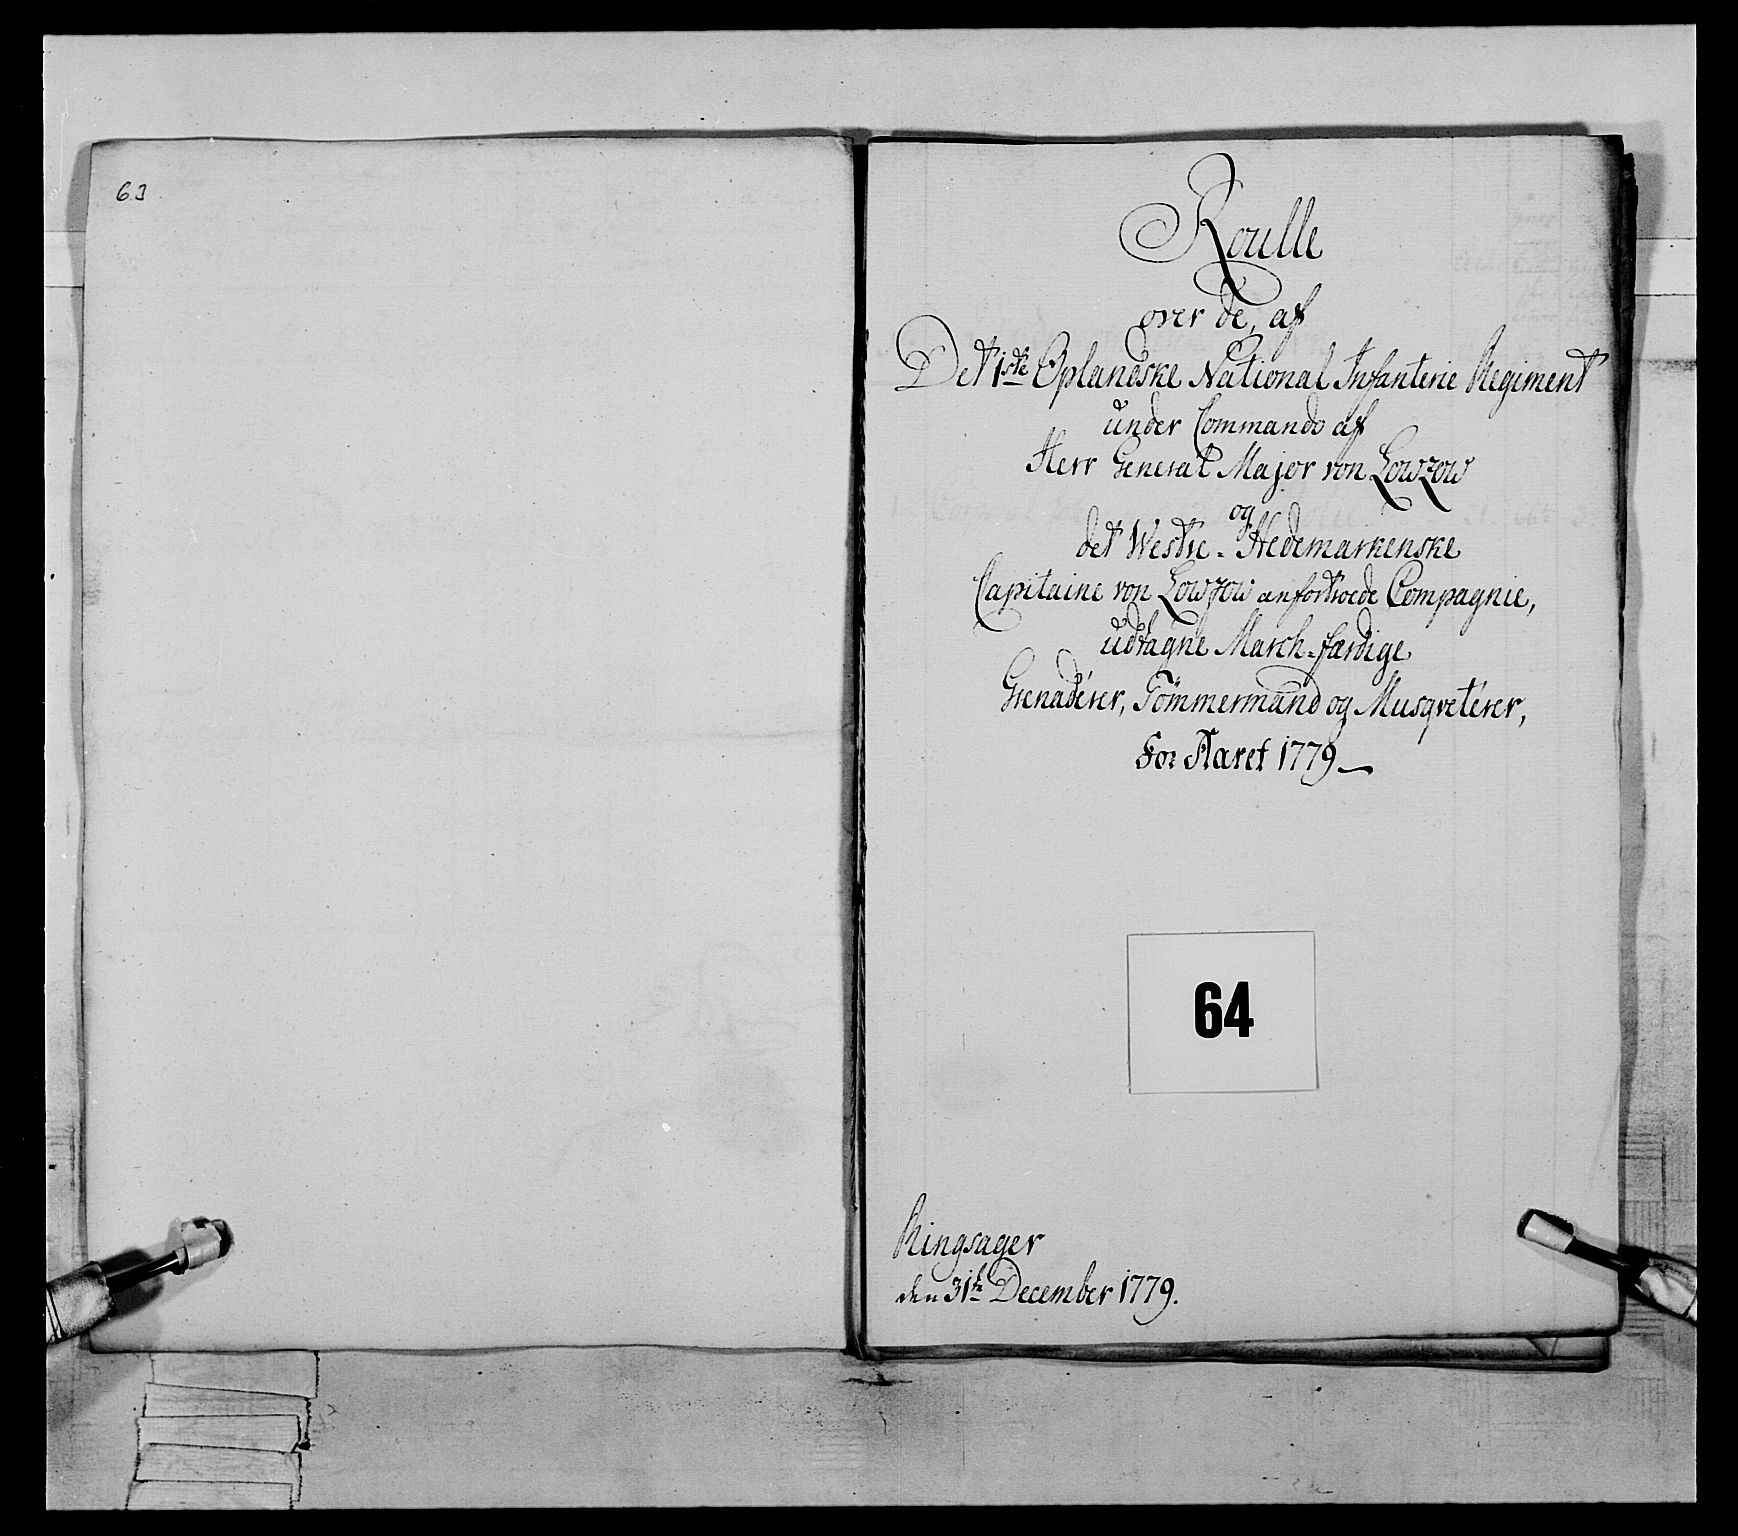 63
Roulle
over de, af
Det 1ste Oplandske National Infanterie Regiment
under Commando af
Herr General Major von Lowzow
og
det Westre-Hedemarkenske
Capitaine von Lowzow anfortroede Compagnie,
udtagne March-færdige
Grenadérer, Tömmermænd og Musqvetérer,
For Aaret 1779
64
Ringsager
den 31te December 1779.